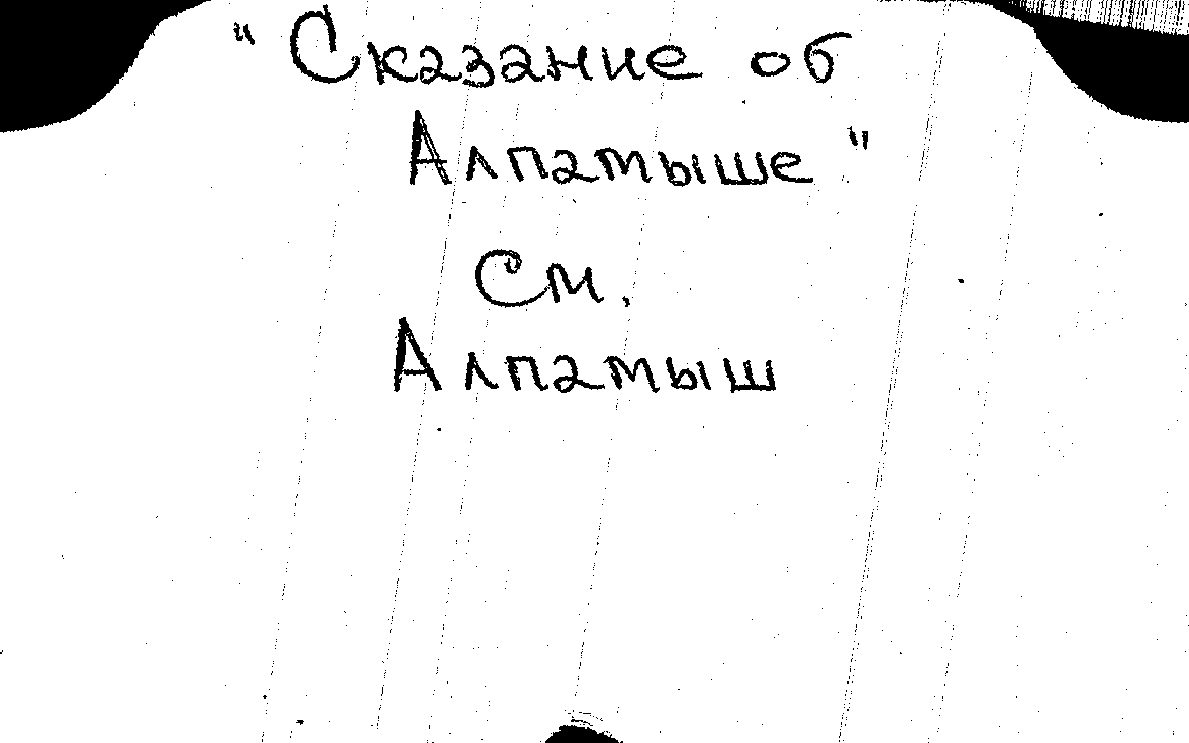 "Сказание об
Алпамыше"
См.
Алпамыш